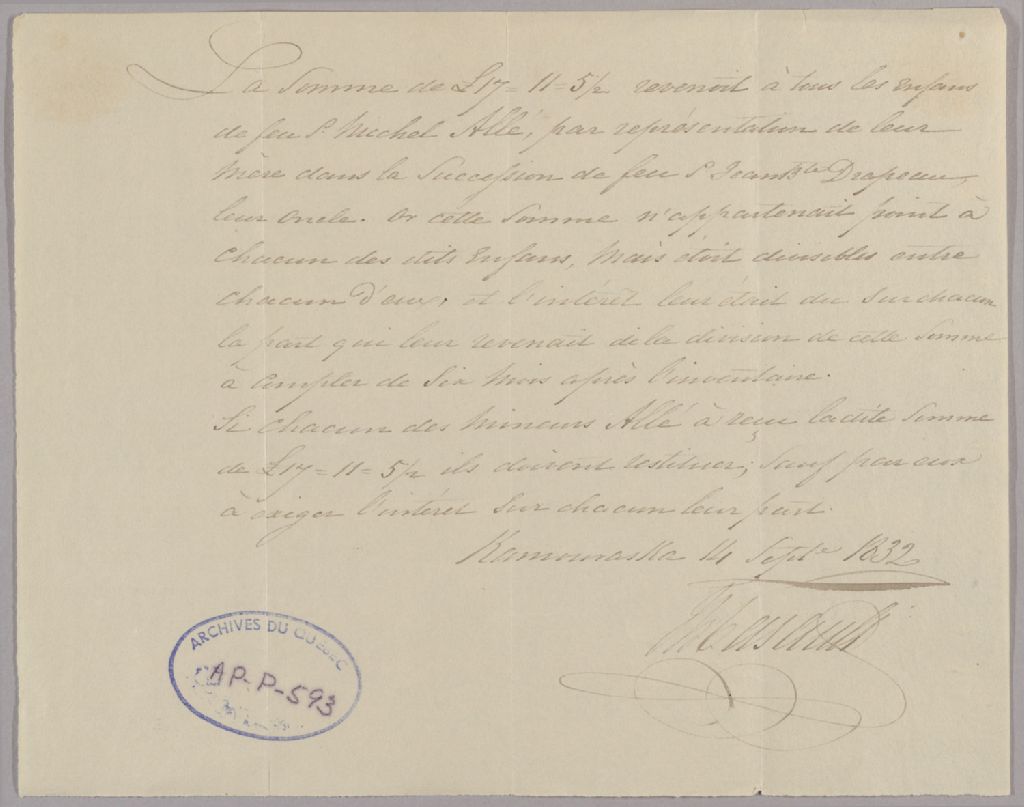 La Somme de £17 = 11 = 5½ revenoit à tous les Enfans
de feu S. Michel Allé, par représentation de leur
Mère dans la Succession de feu S. Jean Bte Drapeau,
leur Oncle. Or cette Somme n'appartenait point à
Chacun des dits Enfans, Mais étoit divisibles entre
chacun d'eux, et l'intérêt leur était du Sur chacun
la part qui leur revenait de la division de cette Somme
à Compter de Six Mois après l'inventaire.
Si Chacun des Mineurs Allé à reçu ladite Somme
de £17 = 11 = 5½ ils doivent restituer; Sauf par eux
à exiger l'intérêt Sur chacun leur part.
Kamouraska 14 Septe 1832
ARCHIVES DU QUÉBEC
AP-P-593